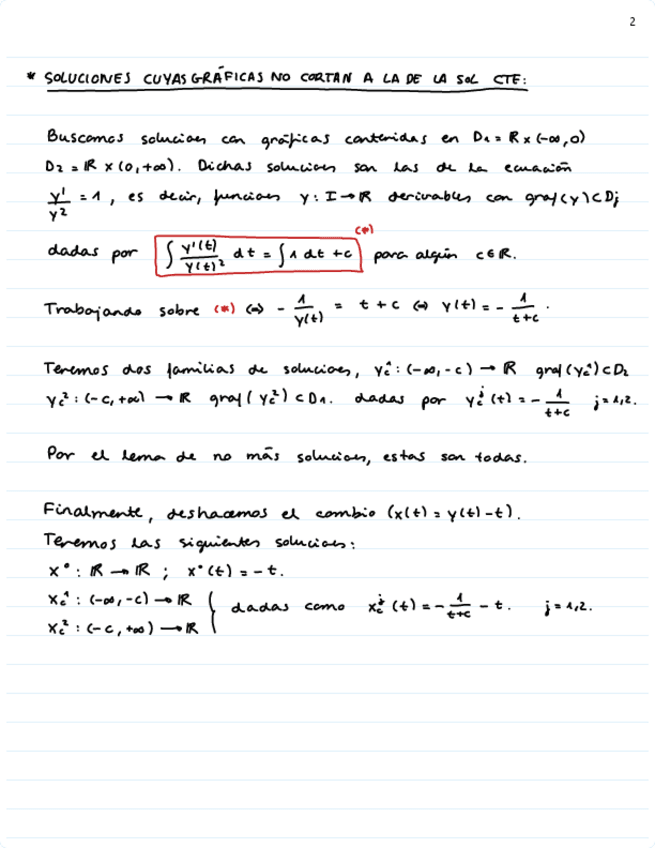 2
* SOLUCIONES CUYAS GRÁFICAS NO CORTAN A LA DE LA SOL CTE:
Buscamos soluciones con gráficas contenidas en D₁ = ℝ x (-∞, 0)
D₂ = ℝ x (0, +∞). Dichas soluciones son las de la ecuación
y'/y² = 1, es decir, funciones y: I → ℝ derivables con graf(y) ⊂ Dj
dadas por ∫ y'(t)/y(t)² dt = ∫ 1 dt + c (*) para algún c ∈ ℝ.
Trabajando sobre (*) ⇔ - 1/y(t) = t + c ⇔ y(t) = - 1/t+c .
Tenemos dos familias de soluciones, y_c^1: (-∞, -c) → ℝ graf(y_c^1) ⊂ D₂
y_c^2: (-c, +∞) → ℝ graf(y_c^2) ⊂ D₁. dadas por y_c^j(t) = - 1/t+c j = 1,2.
Por el lema de no más soluciones, estas son todas.
Finalmente, deshacemos el cambio (x(t) = y(t) - t).
Tenemos las siguientes soluciones:
x°: ℝ → ℝ ; x°(t) = -t.
x_c^1: (-∞, -c) → ℝ
x_c^2: (-c, +∞) → ℝ } dadas como x_c^j(t) = - 1/t+c - t. j = 1,2.